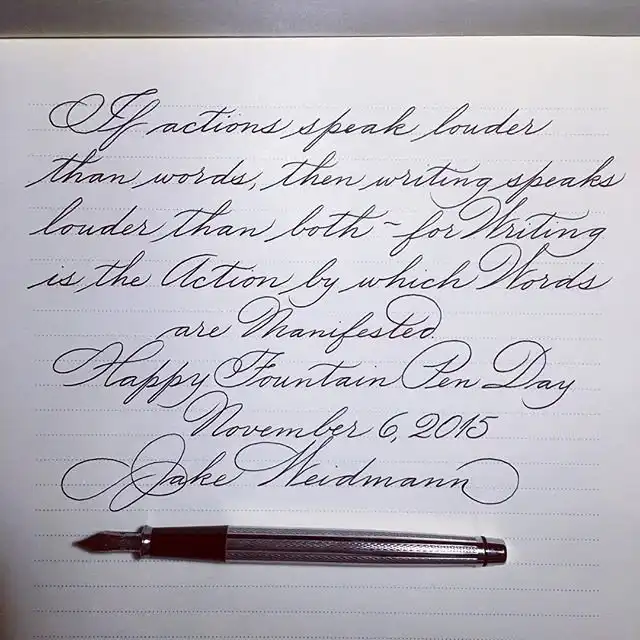 If actions speak louder
than words, then writing speaks
louder than both - for Writing
is the Action by which Words
are Manifested.
Happy Fountain Pen Day
November 6, 2015
Jake Weidmann